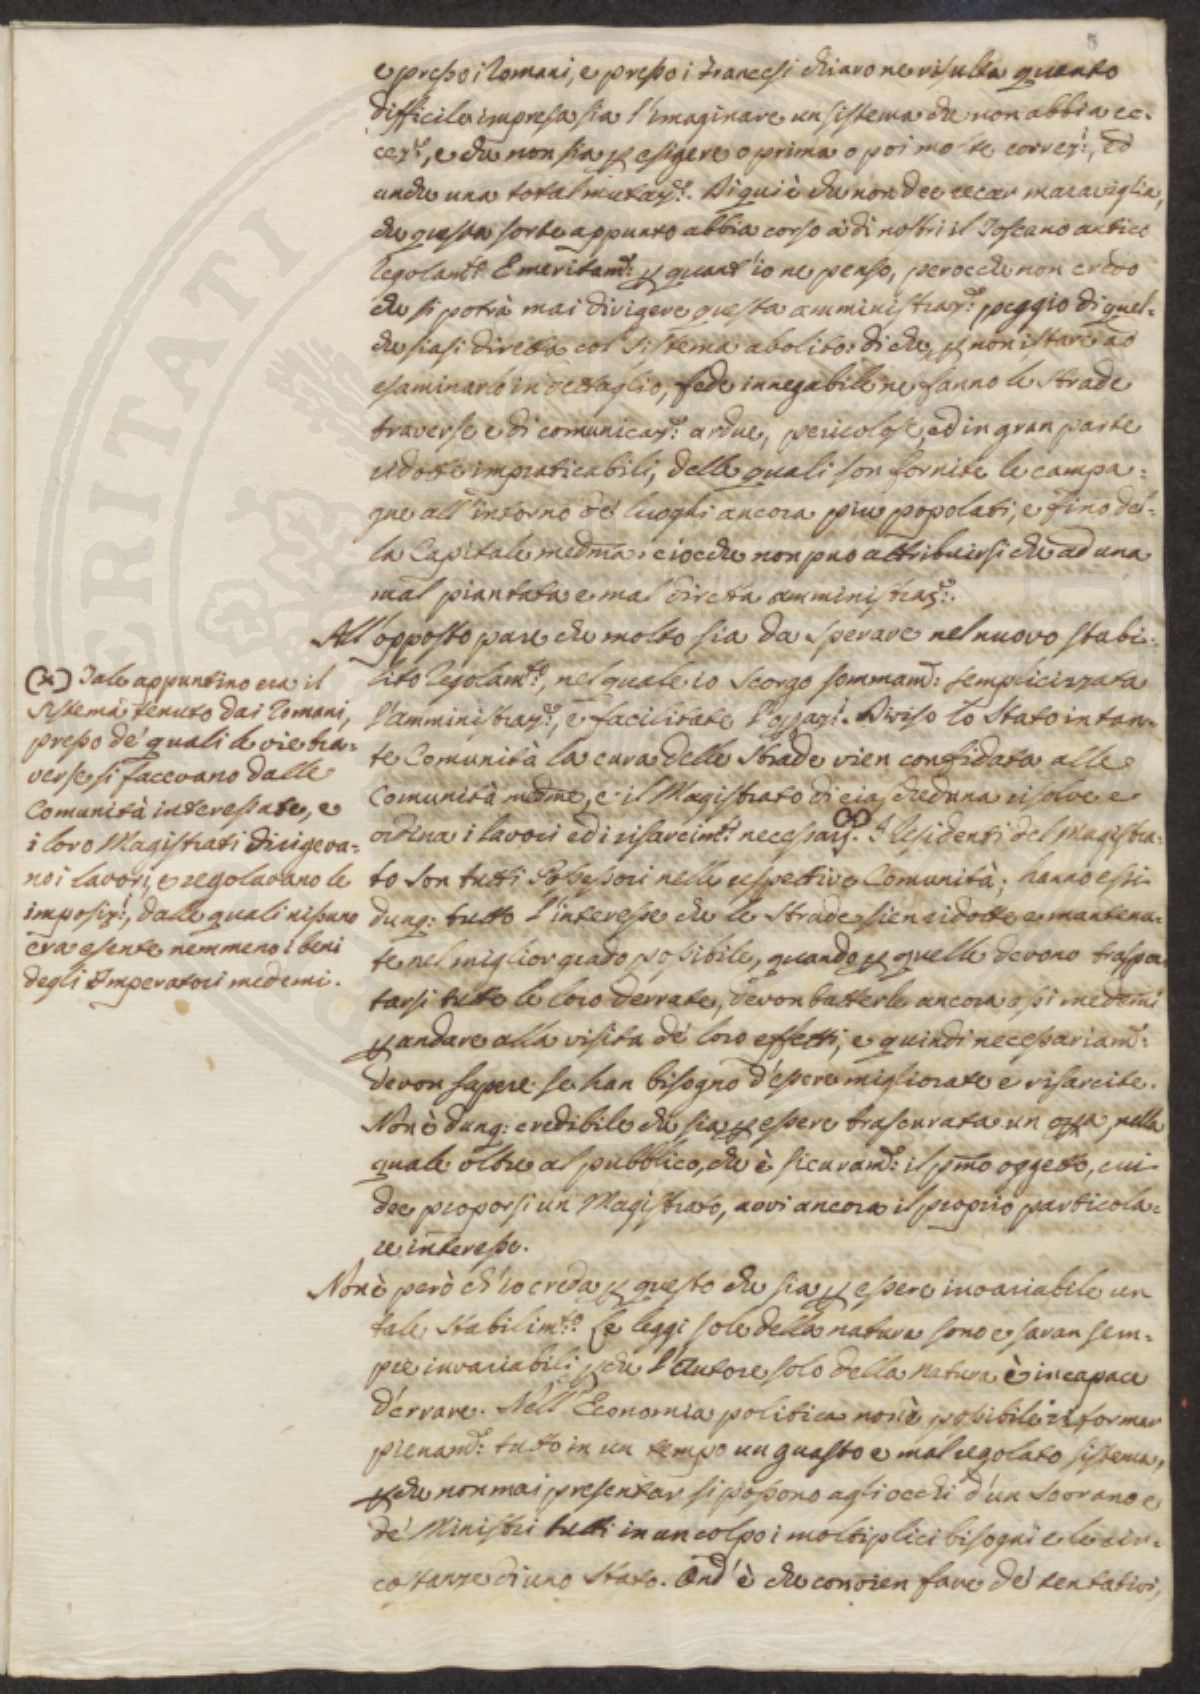 5
e presso i Romani, e presso i Francesi chiaro ne risulta quanto
difficile impresa sia l'imaginare un sistema che non abbia ec-
cez.ni, e che non sia p esigere o prima o poi molte correz.ni, ed
anche una total mutaz.ne. Di qui è che non dee recar maraviglia,
che questa sorte appunto abbia corso a' dì nostri il Toscano antico
Regolam.to. E meritam.e p quant'io ne penso, perocchè non credo
che si potrà mai dirigere questa amministraz.ne peggio di quel-
che siasi diretta col sistema abolito: di che, p non istare ad
esaminarlo in dettaglio, fede innegabile ne fanno le strade
traverse e di comunicaz.ne ardue, pericolose, ed in gran parte
ridotte impraticabili, delle quali son fornite le campa-
gne all'intorno de' luoghi ancora più popolati, e fino del-
la Capitale medma, ciocchè non può attribuirsi che ad una
mal piantata e mal diretta amministraz.ne.
All'opposto pare che molto sia da sperare nel nuovo stabi-
lito Regolam.to, nel quale io scorgo sommam.e semplicizzata
l'amministraz.ne, e facilitate l'opzaz.ni. Diviso lo Stato in tan-
te Comunità la cura delle strade vien confidata alle
Comunità medme, e il Magistrato di ciascheduna risolve e
ordina i lavori ed i risarcim.ti necessarj. (x) I Residenti del Magistra-
to son tutti Possessori nelle respettive Comunità; hanno essi
dunq: tutto l'interesse che le strade sien ridotte e mantenu-
te nel miglior grado possibile, quando p quelle devono traspor-
tarsi tutte le loro derrate, devon batterle ancora essi medemi
p andare alla visita de' loro effetti, e quindi necessariam.e
devon sapere se han bisogno d'essere migliorate e risarcite.
Non è dunq: credibile che sia p essere trascurata un opza, nella
quale oltre al pubblico, che è sicuram.e il pmo oggetto, cui
dee proporsi un Magistrato, avvi ancora il proprio particola-
re interesse.
Non è però ch'io creda p questo che sia p essere invariabile un
tale stabilim.to. Le leggi sole della natura sono e saran sem-
pre invariabili, p che l'Autore solo della natura è incapace
d'errare. Nell'Economia politica non è possibile riformar
pienam.e tutto in un tempo un guasto e mal regolato sistema,
p che non mai presentar si possono agli occhi d'un Sovrano e
de' Ministri tutti in un colpo i moltiplici bisogni e le cir-
costanze di uno Stato. Ond'è che convien fare de' tentativi,
(x) Tale appuntino era il
sistema tenuto dai Romani,
presso de' quali le vie tra-
verse si facevano dalle
Comunità interessate, e
i loro Magistrati dirigeva-
no i lavori, e regolavano le
imposiz.ni, dalle quali nissuno
era esente nemmeno i beni
degli Imperatori medemi.